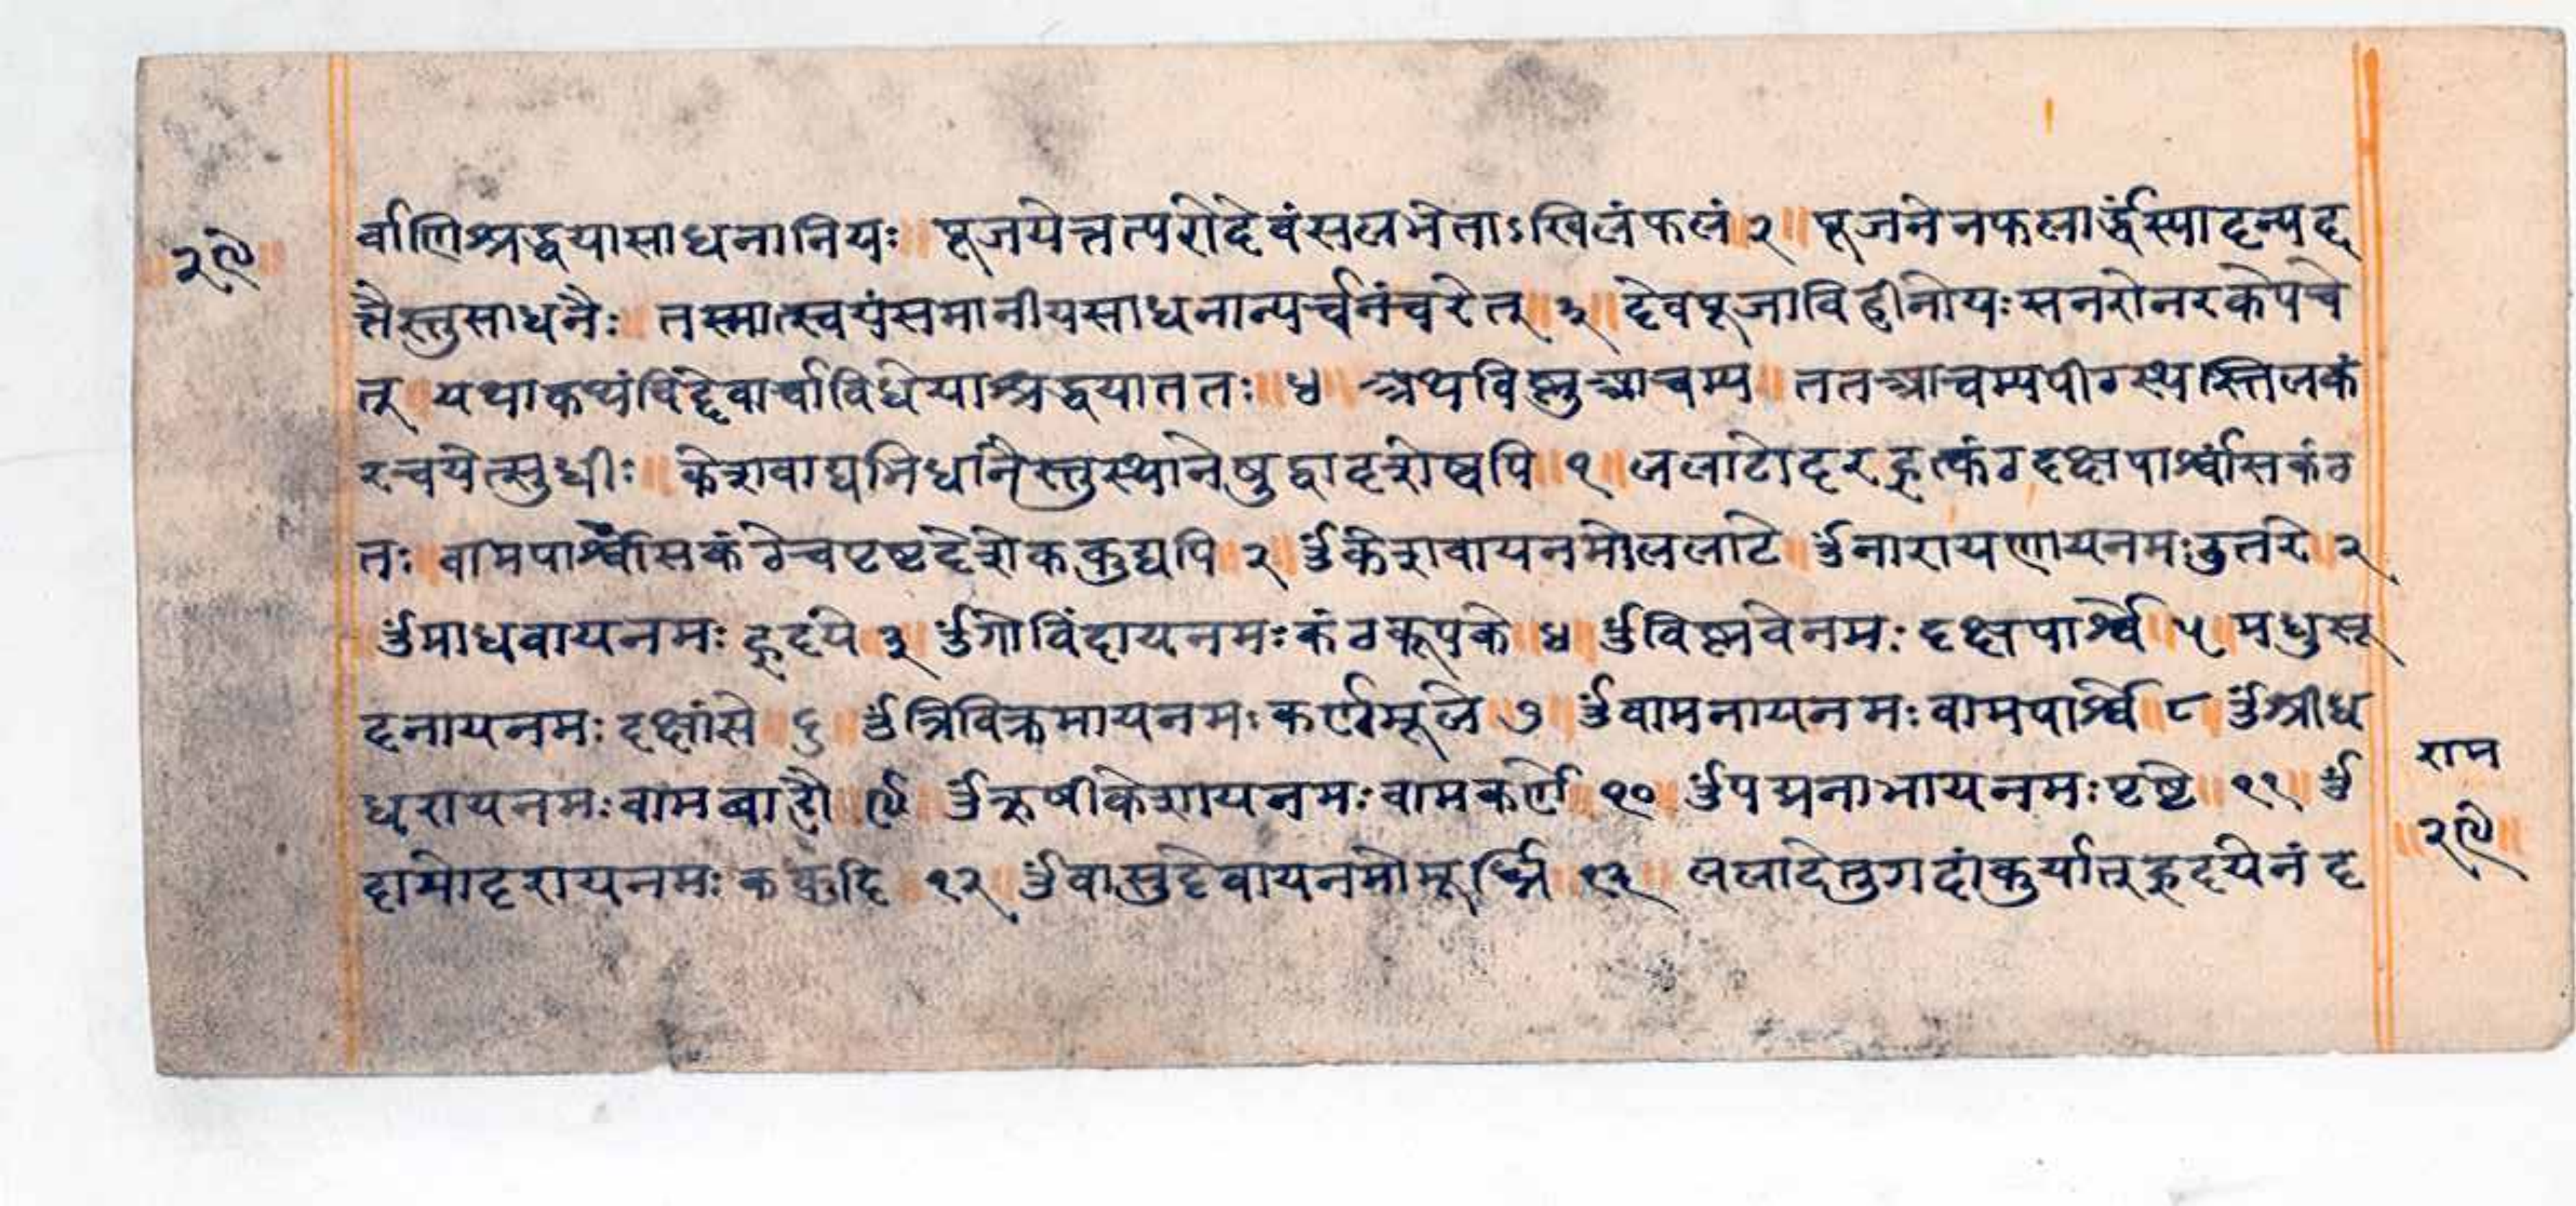 २९
र्वाणिश्रद्धयासाधनानियः ॥ पूजयेत्तत्परोदेवंसलभेताऽखिलंफलं २ ॥ पूजनेनफलार्द्धंस्यादन्यद
त्तैस्तुसाधनैः ॥ तस्मात्स्वयंसमानीयसाधनान्यर्चनंचरेत् ३ ॥ देवपूजाविहीनोयःसनरोनरकेपचे
त् ॥ यथाकथंचिद्देवार्चाविधेयाश्रद्धयाततः ॥ ४ ॥ अथविष्णुआचम्य ॥ ततआचम्यपीठस्थस्तिलकं
रचयेत्सुधीः ॥ केशवाद्यभिधानैस्तुस्थानेषुद्वादशेष्वपि ॥ १ ॥ ललाटोदरहृत्कंठदक्षपार्श्वांसकंठ
तः ॥ वामपार्श्वांसकंठेचपृष्टदेशेककुद्यपि २ ॥ ॐकेशवायनमोललाटे ॥ ॐनारायणायनमःदुतरे ॥ २
ॐमाधवायनमः हृदये ३ ॥ ॐगोविंदायनमःकंठकूपके ॥ ४ ॥ ॐविष्णवेनमः दक्षपार्श्वे ॥ ५ ॥ मधुसू
दनायनमः दक्षांसे ॥ ६ ॥ ॐत्रिविक्रमायनमः कर्णमूले ७ ॥ ॐवामनायनमः वामपार्श्वे ॥ ८ ॥ ॐश्रीध
धरायनमःवामबाहौ ॥ ९ ॥ ॐऋषीकेशायनमःवामकर्णे ॥ १० ॥ ॐपद्मनाभायनमःपृष्टे ॥ ११ ॥ ॐ
दामोदरायनमः ककुदि ॥ १२ ॥ ॐवासुदेवायनमोमूर्ध्नि ॥ १३ ॥ ललाटेतुगदांकुर्यात्हृदयेनंद
राम
॥ २९ ॥